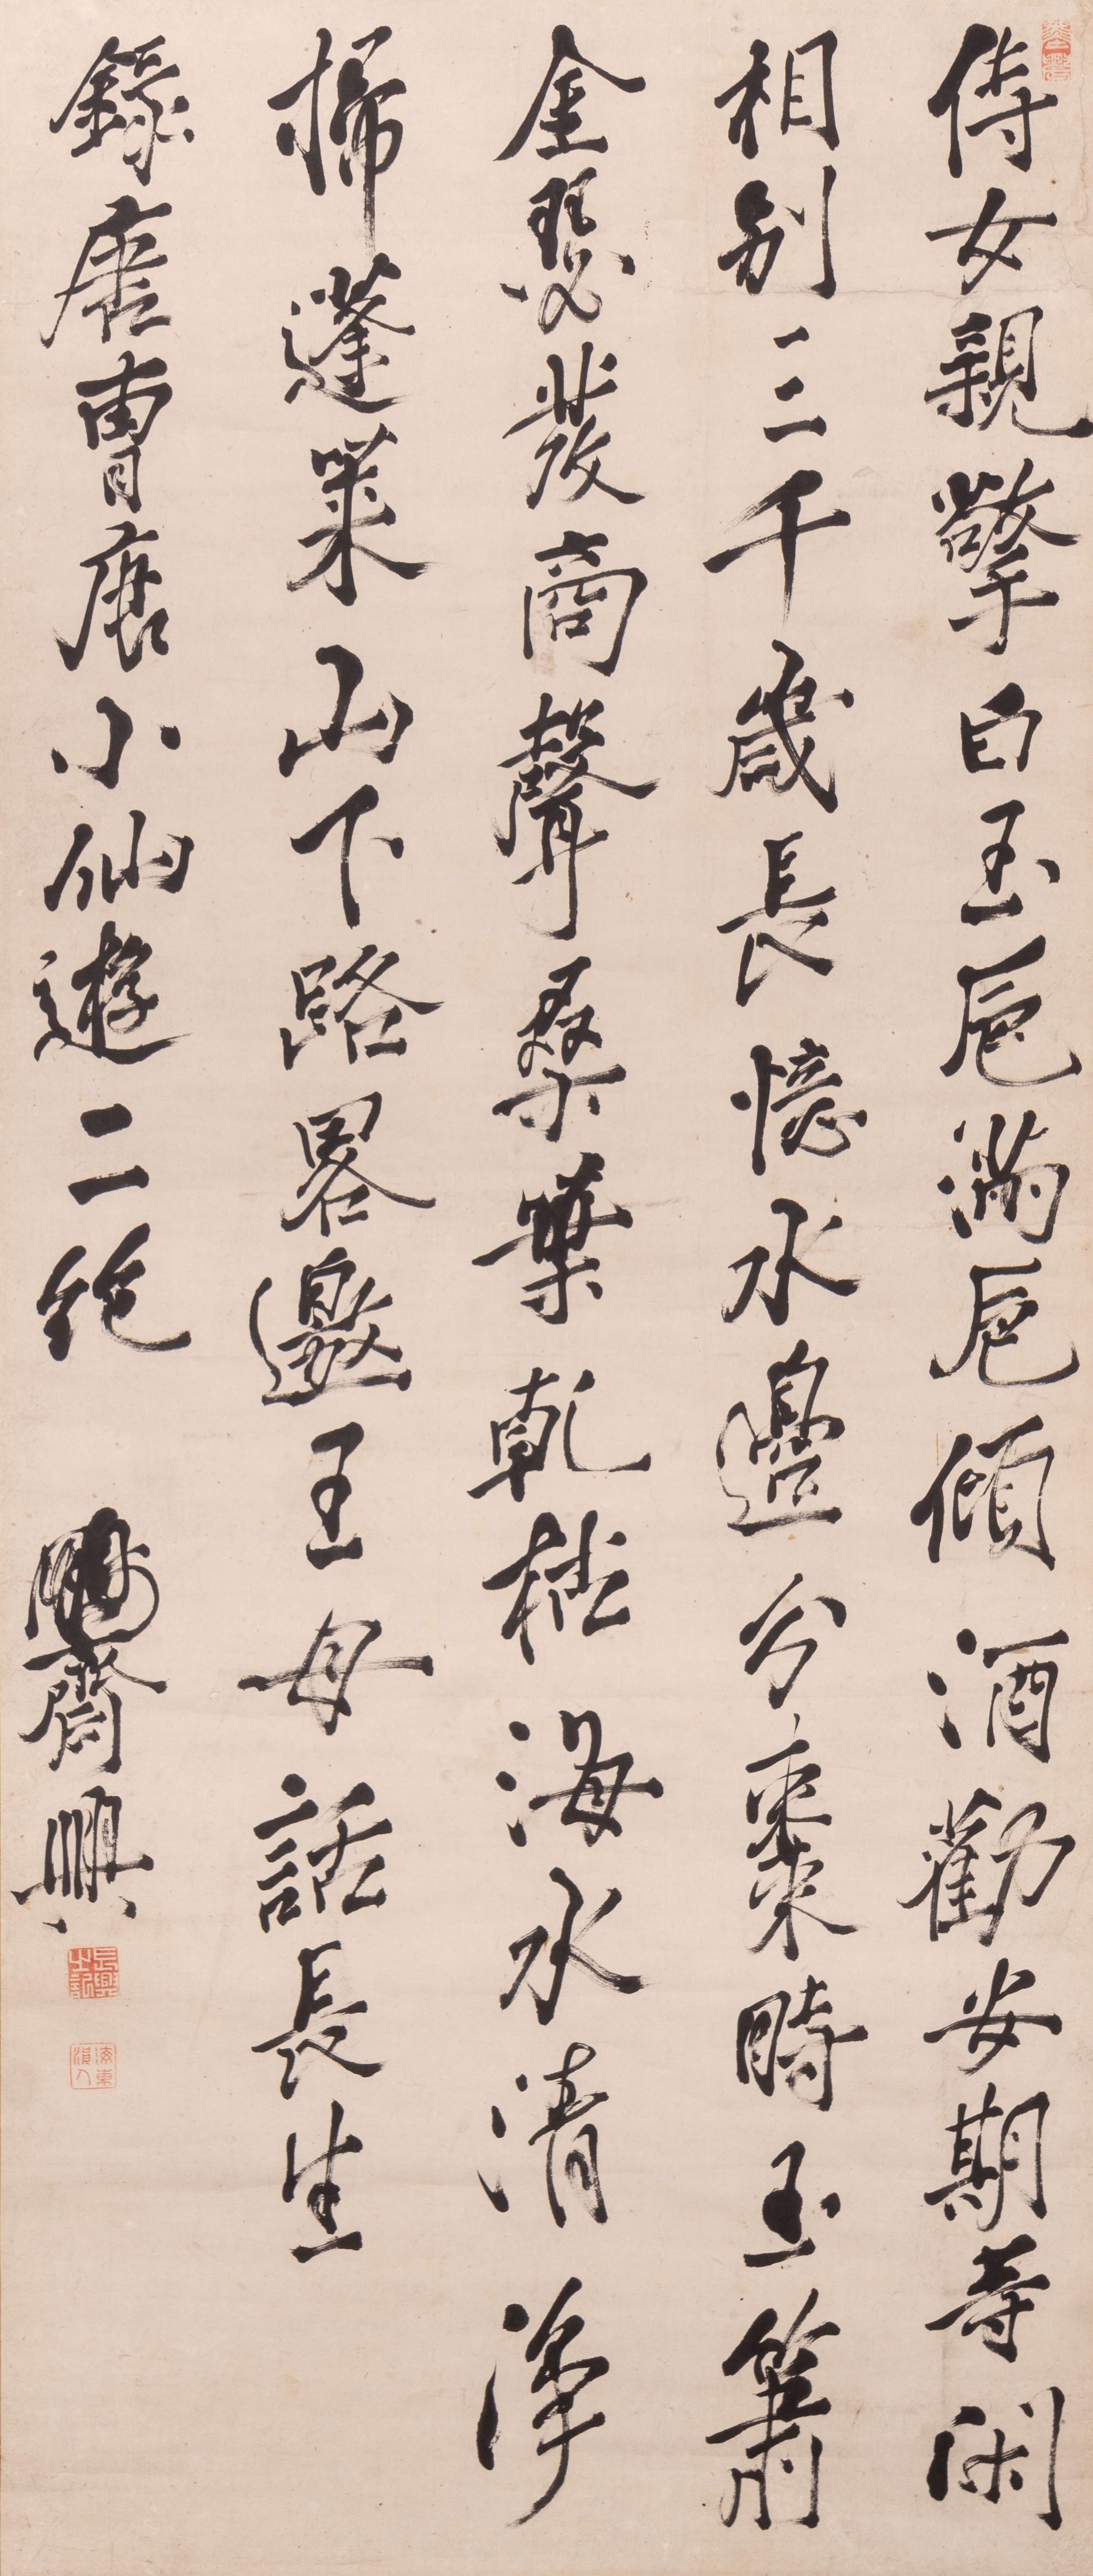 侍女親擎白玉巵滿巵傾酒勸安期等閑
相別三千歲長憶水邊分棗時玉簫
金瑟發商聲桑葉乾枯海水清淨
掃蓬萊山下路畧邀王母話長生
錄唐曹唐小仙遊二絶 鵬齋興
長興之印